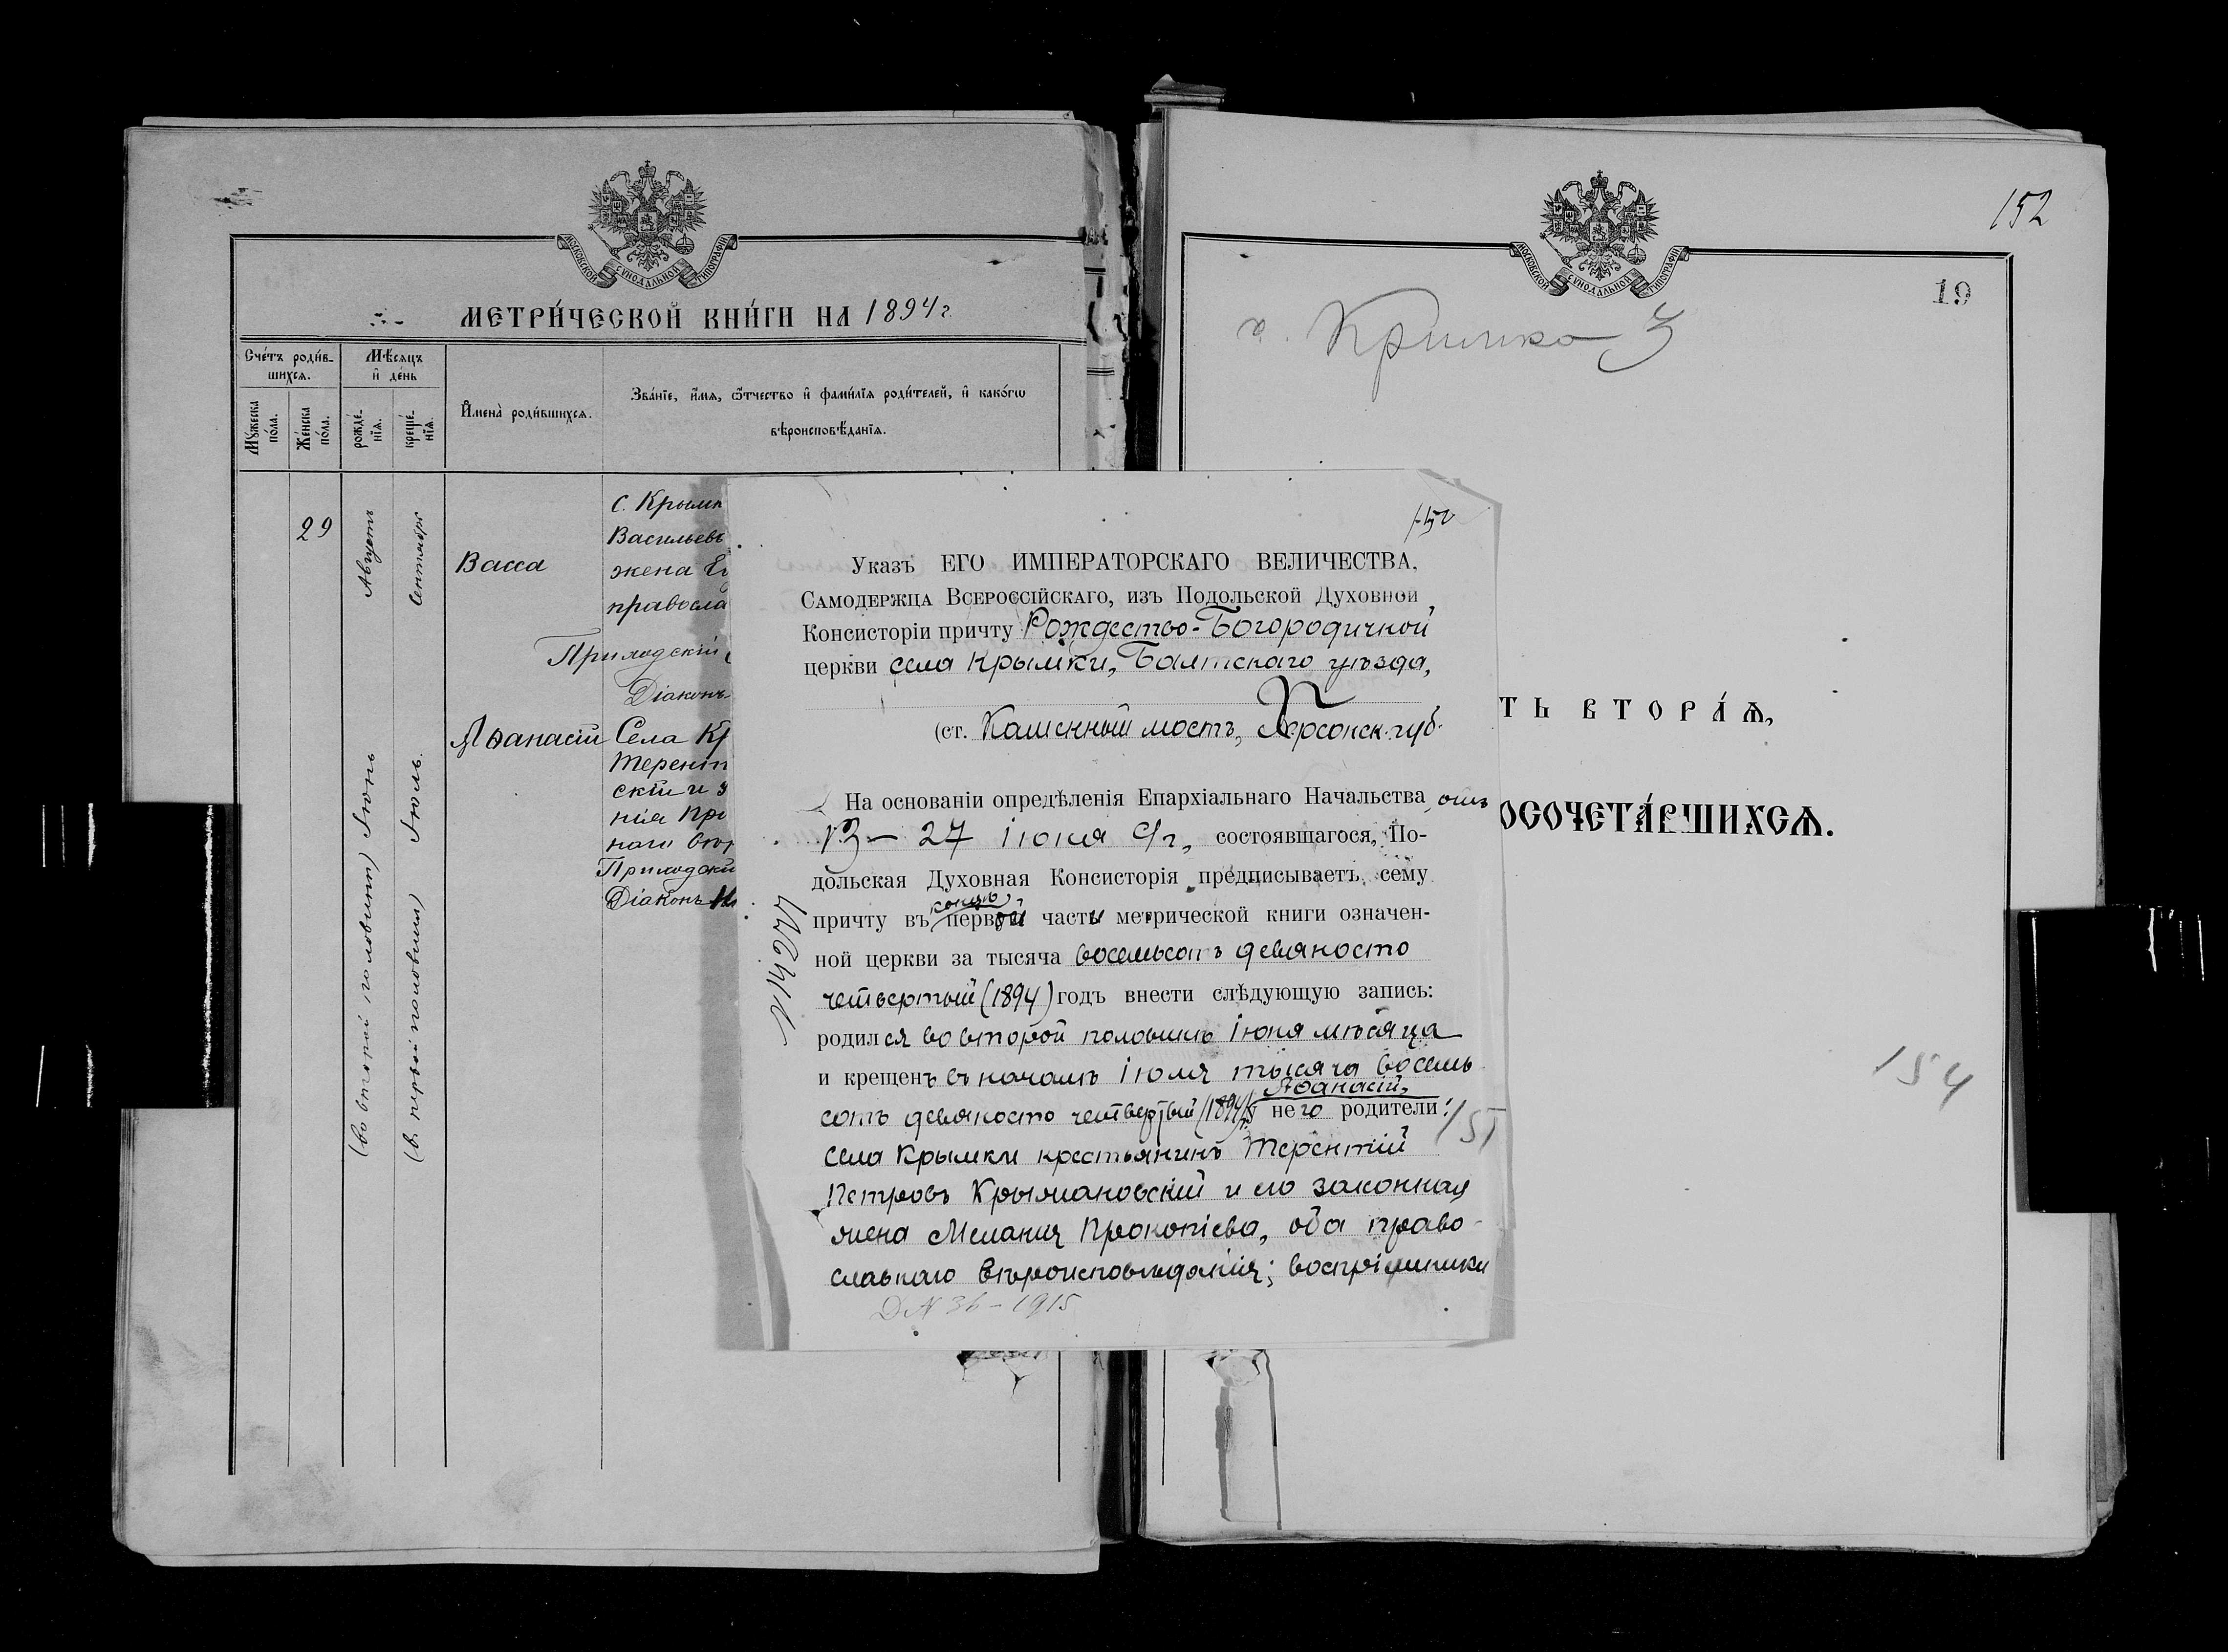 МОСКОВСКОЙ СѴНОДАЛЬНОЙ ТИПОГРАФІИ
МЕТРИ́ЧЕСКОЙ КНИ́ГИ НА 1894 г.
Сче́тъ роди́вшихсѧ.
Мѣ́сѧцъ и҆ де́нь
И҆мена̀ роди́вшихсѧ.
Зва́нїе, и҆́мѧ, ѻ҆́тчество и҆ фами́лїѧ роди́телей, и҆ како́гѡ
вѣроисповѣ́данїѧ.
Мꙋ́жеска по́ла.
Же́нска по́ла.
рожде́нїѧ.
креще́нїѧ.
29
Августъ
Сентябрь
Васса
с. Крымк
Васильевъ
жена Е
правосла
Приходскій
Діаконъ
(во второй половинѣ) Іюнь
(в. первой половинѣ) Іюль.
Аѳанасій
Села Кр
Терент
скій и з
нія Про
наго вѣр
Приходскі
Діаконъ
152
Указъ ЕГО ИМПЕРАТОРСКАГО ВЕЛИЧЕСТВА,
Самодержца Всероссійскаго, изъ Подольской Духовной
Консисторіи причту Рождество-Богородичной
церкви села Крымки, Балтскаго уѣзда,
(ст. Каменный мостъ, Херсонск. губ.
На основаніи опредѣленія Епархіальнаго Начальства, отъ
13 – 27 Іюня с/г, состоявшагося, По-
дольская Духовная Консисторія предписываетъ сему
концѣ
причту въ первой части метрической книги означен-
ной церкви за тысяча восемьсотъ девяносто
четвертый (1894) годъ внести слѣдующую запись:
родился во второй половинѣ Іюня мѣсяца
и крещенъ въ началѣ Іюля тысяча восемь
Аѳанасій,
сотъ девяносто четвертый (1894) г. у него родители:
села Крымки крестьянинъ Терентій
Петровъ Крымановскій и его законная
жена Меланія Прокопіева, оба право-
славнаго вѣроисповѣданія; воспріемники
№ 14277
Д № 36 – 1915
МОСКОВСКОЙ СѴНОДАЛЬНОЙ ТИПОГРАФІИ
152
19
с. Кримка
ТЬ ВТОРА́Ѧ,
ОСОЧЕТА́ВШИХСѦ.
154
151